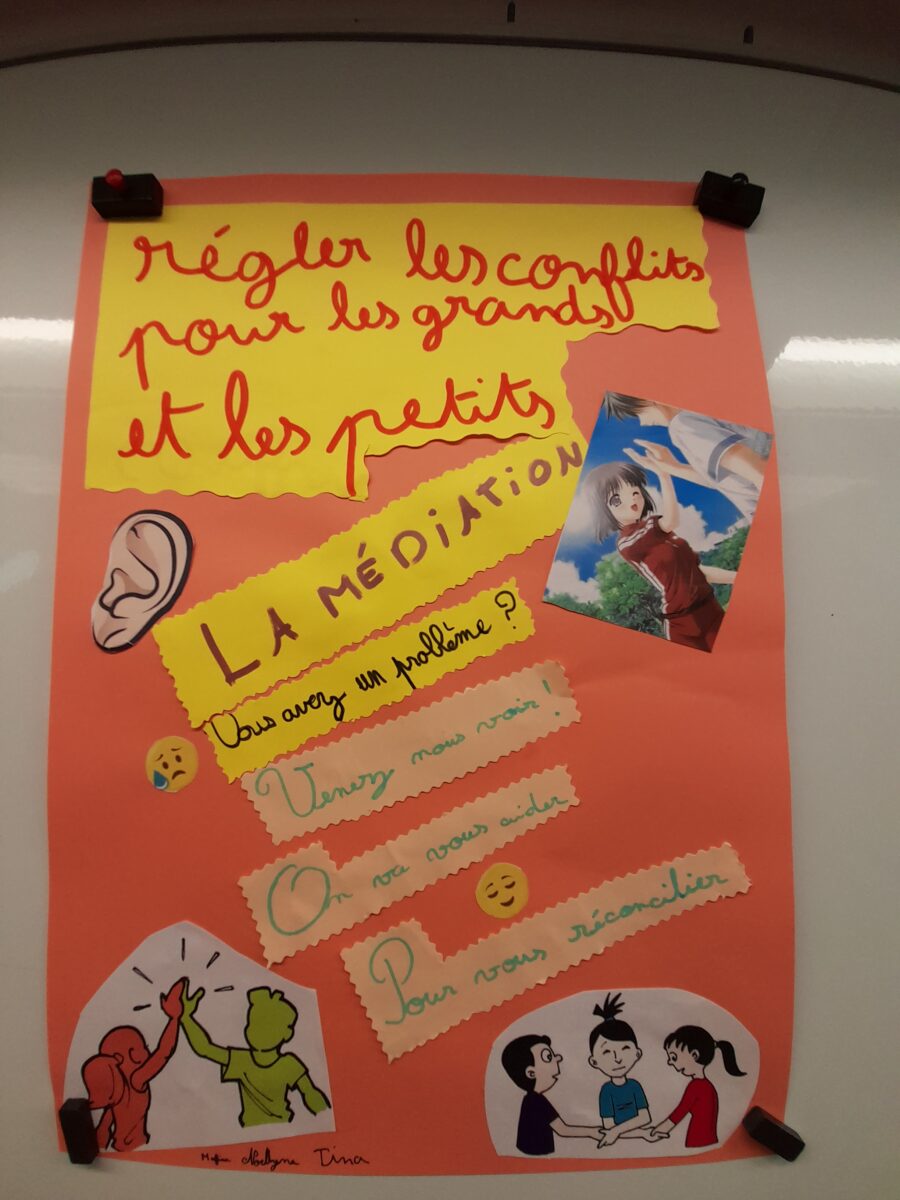 régler les conflits
pour les grands
et les petits
LA MÉDiATiON
Vous avez un problème ?
Venez nous voir !
On va vous aider
Pour vous réconcilier
Tina